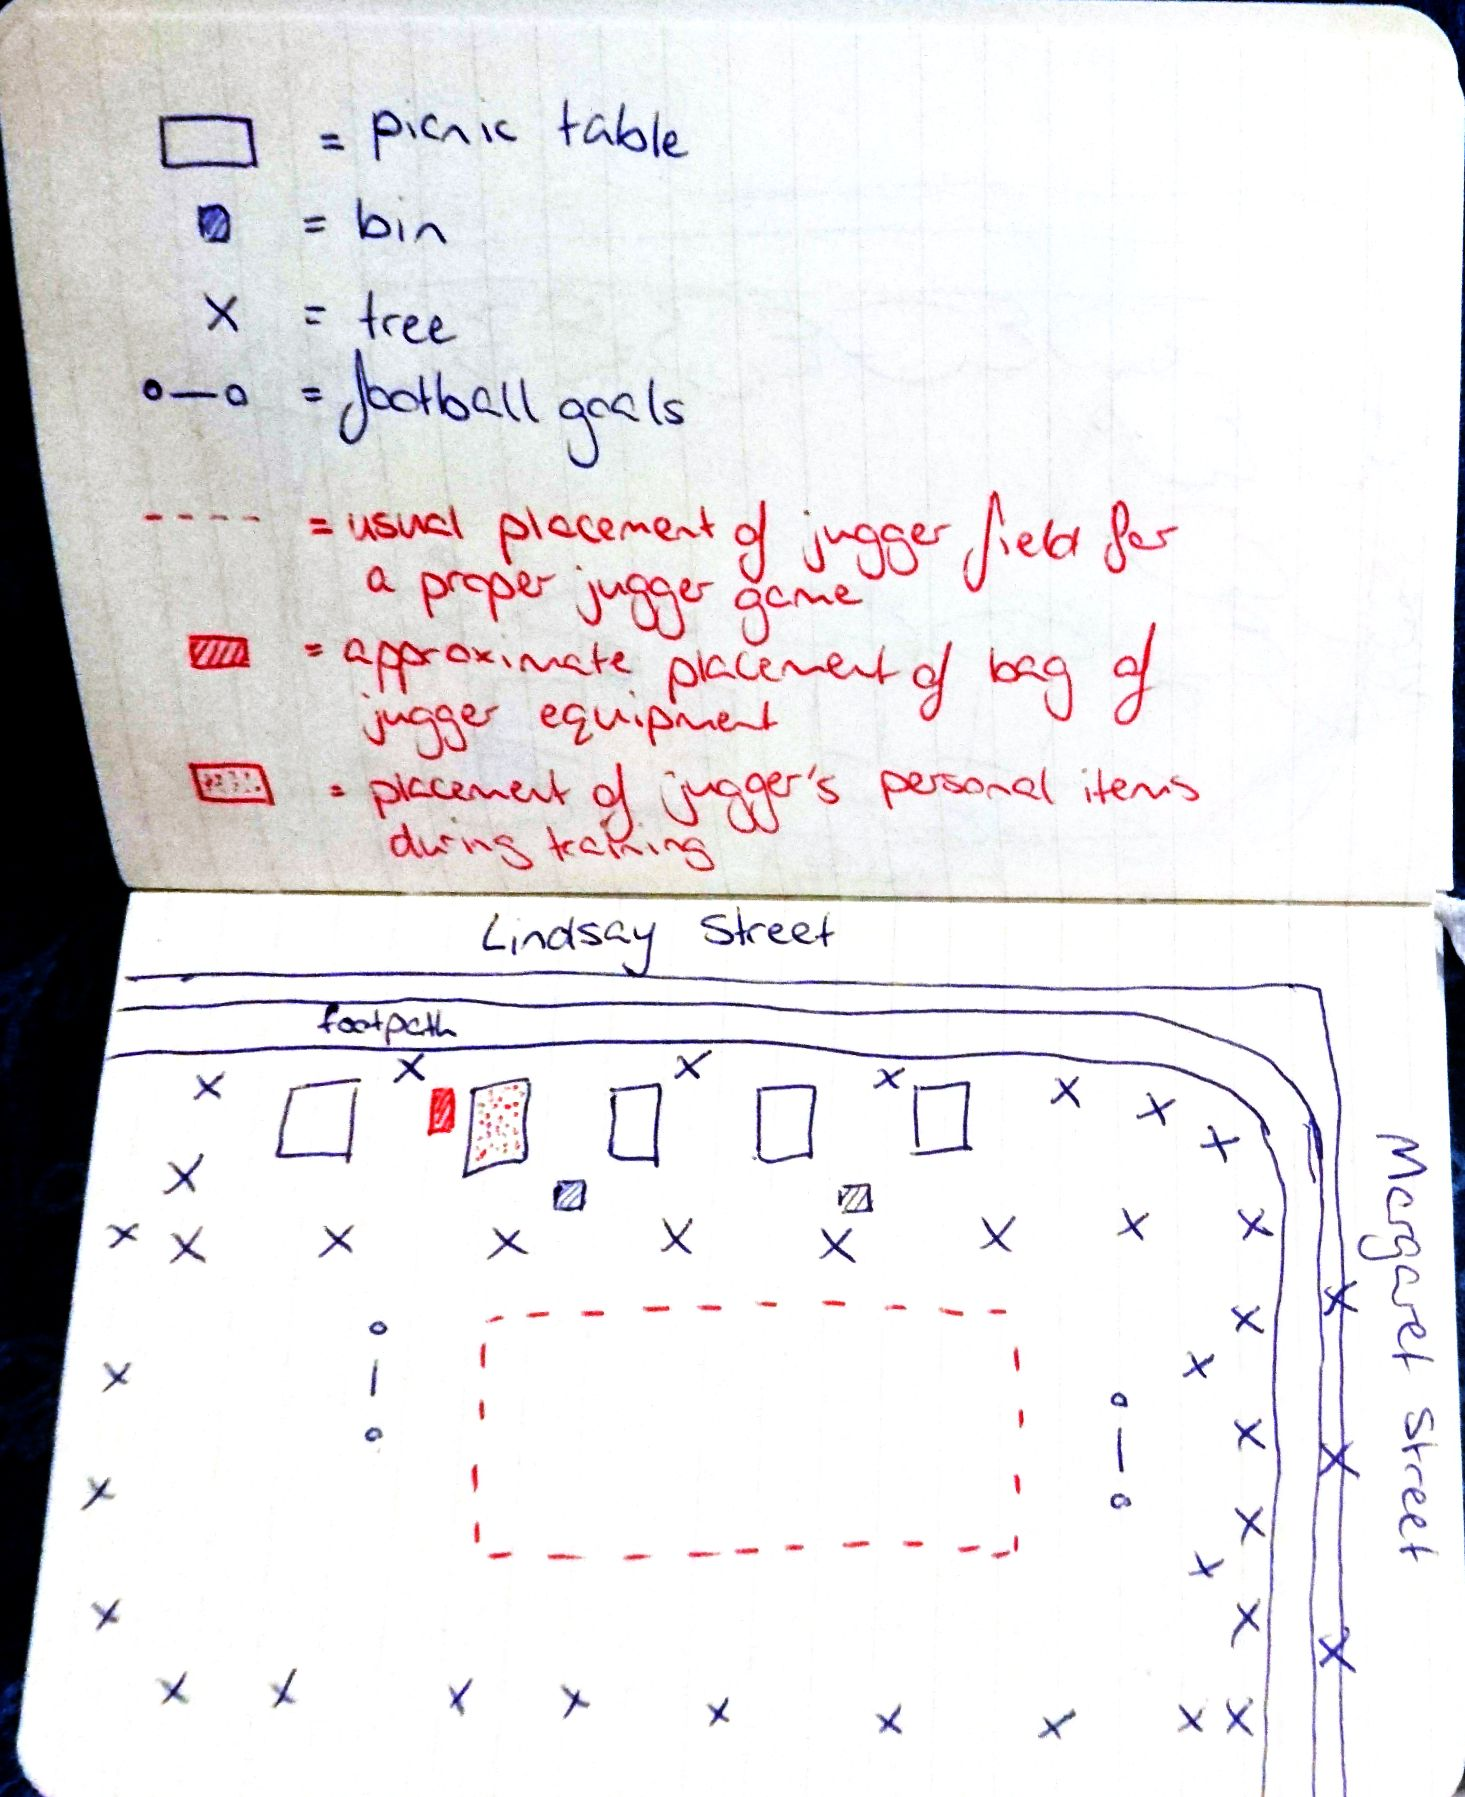 = picnic table
= bin
X = tree
o—o = football goals
---- = usual placement of jugger field for
a proper jugger game
= approximate placement of bag of
jugger equipment
= placement of jugger's personal items
during training
Lindsay Street
footpath
Margaret Street